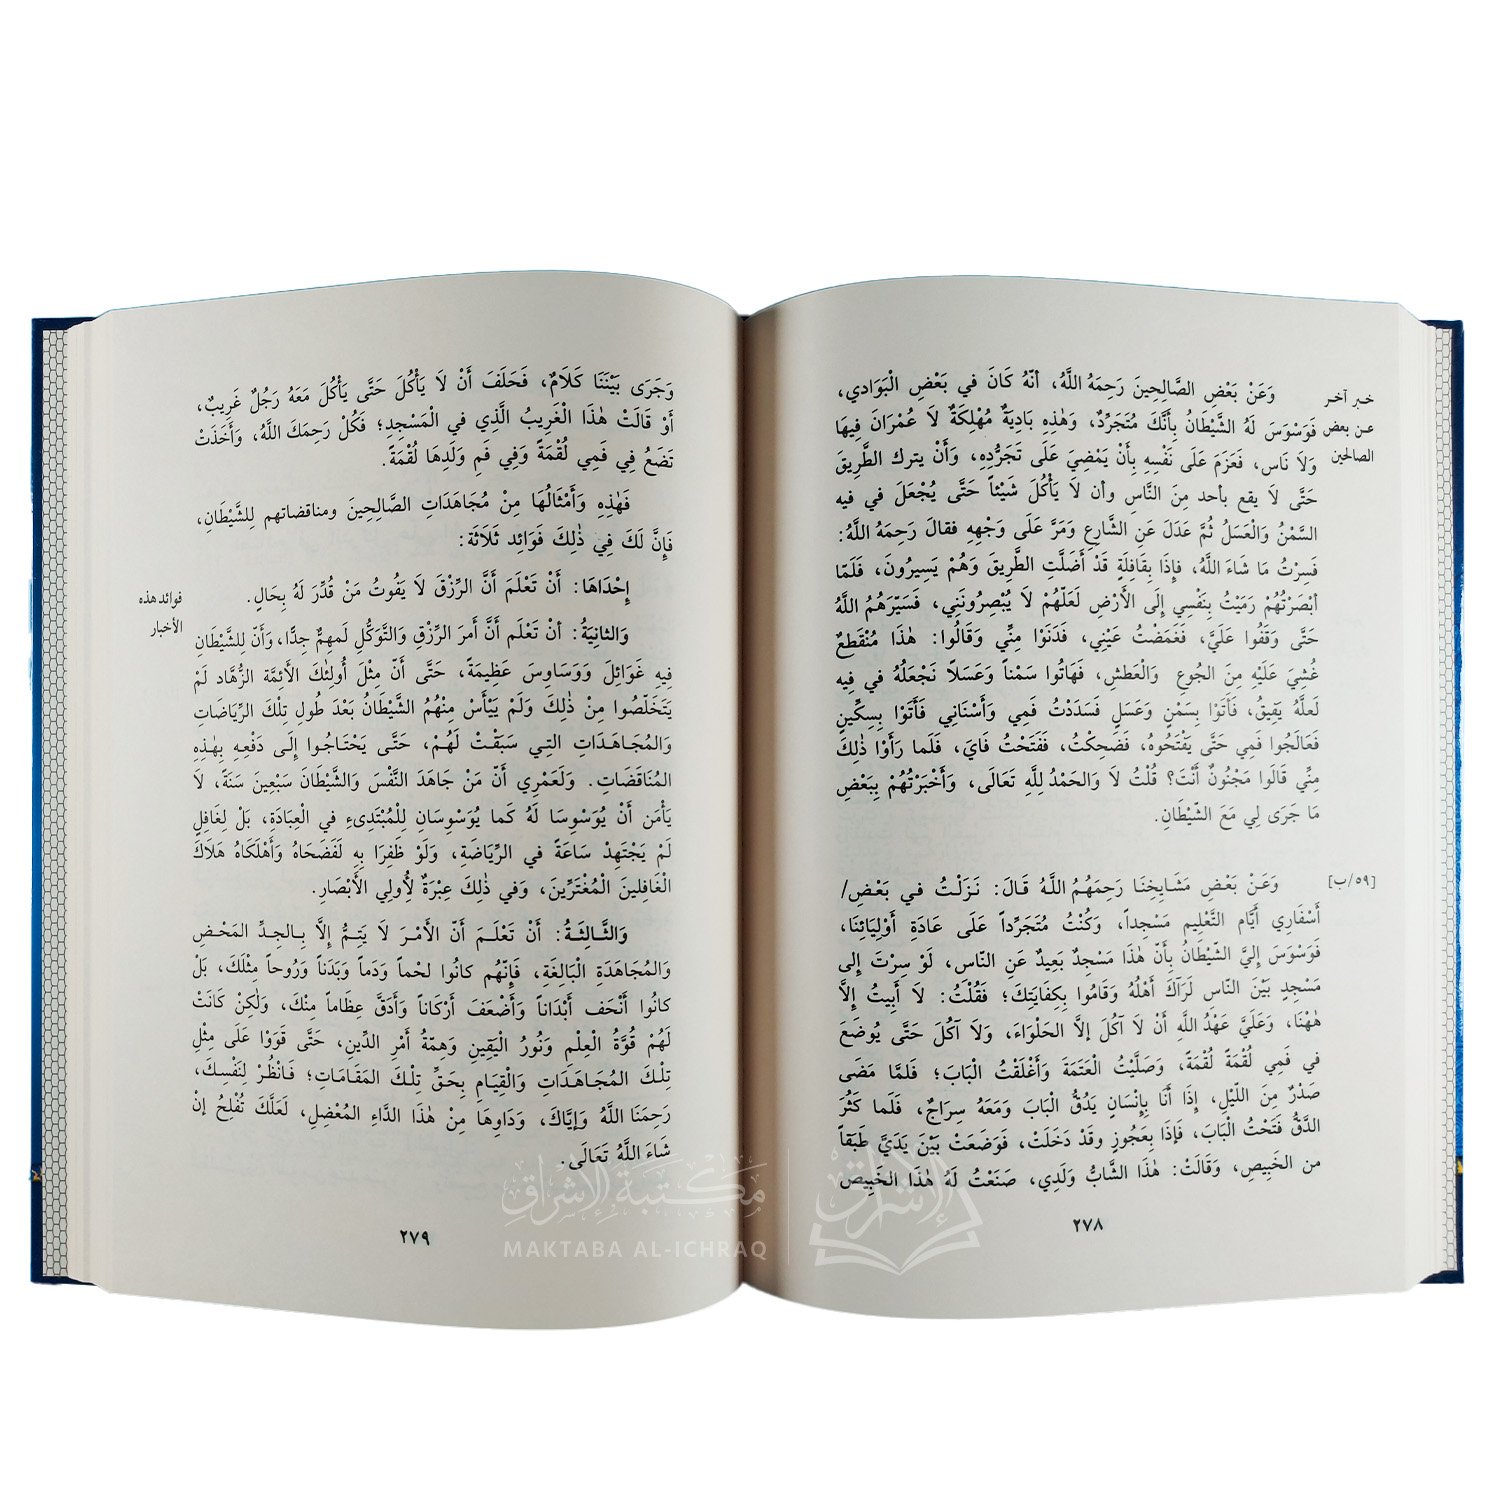 خبر آخر
عن بعض
الصالحين
وَعَنْ بَعْضِ الصَّالِحِينَ رَحِمَهُ اللَّهُ، أنّهُ كَانَ في بَعْضِ الْبَوَادي،
فَوَسْوَسَ لَهُ الشَّيْطَانُ بِأَنَّكَ مُتَجَرِّدٌ، وَهَٰذِهِ بَادِيَةٌ مُهْلِكَةٌ لاَ عُمْرَانَ فِيهَا
وَلاَ نَاس، فَعَزَمَ عَلَى نَفْسِهِ بِأَنْ يَمْضِيَ عَلَى تَجَرُّدِهِ، وَأَنْ يترك الطَّرِيقَ
حَتَّى لاَ يقع بأحد مِنَ النَّاسِ وأن لاَ يَأْكُلَ شَيْئاً حَتَّى يُجْعَلَ في فيه
السَّمْنُ وَالْعَسَلُ ثُمَّ عَدَلَ عَنِ الشَّارِعِ وَمَرَّ عَلَى وَجْهِهِ فقالَ رَحِمَهُ اللَّهُ:
فَسِرْتُ مَا شَاءَ اللَّهُ، فَإِذَا بِقَافِلَةٍ قَدْ أَضَلَّتِ الطَّرِيقَ وَهُمْ يَسِيرُونَ، فَلَمّا
أبْصَرْتُهُمْ رَمَيْتُ بِنَفْسِي إِلَى الأَرْضِ لَعَلَّهُمْ لاَ يُبْصِرُونَنِي، فَسَيّرَهُمُ اللَّهُ
حَتَّى وَقَفُوا عَلَيَّ، فَغَمَضْتُ عَيْنِي، فَدَنَوْا مِنِّي وَقَالُوا: هَٰذَا مُنْقَطِعٌ
غُشِيَ عَلَيْهِ مِنَ الجُوعِ وَالْعَطَشِ، فَهَاتُوا سَمْناً وَعَسَلاً نَجْعَلُهُ في فِيه
لَعلَّهُ يَفِيقُ، فَأَتَوْا بِسَمْنٍ وَعَسَلٍ فَسَدَدْتُ فَمِي وَأَسْنَانِي فَأَتَوْا بِسِكِّينٍ
فَعَالَجُوا فَمِي حَتَّى يَفْتَحُوهُ، فَضَحِكْتُ، فَفَتَحْتُ فَايَ، فَلَما رَأَوْا ذٰلِكَ
مِنِّي قَالُوا مَجْنُونٌ أَنْتَ؟ قُلْتُ لاَ وَالْحَمْدُ لِلَّهِ تَعَالَى، وَأَخْبَرْتُهُمْ بِبَعْضِ
مَا جَرَى لِي مَعَ الشّيْطَانِ.
[٥٩/ب]
وَعَنْ بَعْضِ مَشَايِخِنَا رَحِمَهُمُ اللَّهُ قَالَ: نَزَلْتُ في بَعْضِ/
أَسْفَارِي أَيَّام التَّعْلِيم مَسْجِداً، وَكُنْتُ مُتَجَرِّداً عَلَى عَادَةِ أَوْلِيَائِنَا،
فَوَسْوَسَ إِليَّ الشَّيْطَانُ بِأَنّ هٰذَا مَسْجِدٌ بَعِيدٌ عَنِ النَّاس، لَوْ سِرْتَ إِلى
مَسْجِدٍ بَيْنَ النّاس لَرَآكَ أَهْلُهُ وَقَامُوا بِكِفَايَتِكَ؛ فَقُلْتُ: لاَ أَبِيتُ إلاَّ
هٰهُنَا، وَعَلَيَّ عَهْدُ اللَّهِ أَنْ لاَ آكُلَ إلاَّ الحَلْوَاءَ، وَلاَ آكُلَ حَتَّى يُوضَعَ
في فَمِي لُقْمَةً لُقْمَةً، وَصَلَّيْتُ العَتَمَةَ وَأَغْلَقْتُ الْبَابَ؛ فَلمَّا مَضَى
صَدْرٌ مِنَ اللّيْلِ، إِذَا أَنَا بِإِنْسَانٍ يَدُقُّ الْبَابَ وَمَعَهُ سِرَاجٌ، فَلَما كَثُرَ
الدَّقُّ فَتَحْتُ الْبَابَ، فَإِذَا بِعَجُوزٍ وقَدْ دَخَلَتْ، فَوَضَعَتْ بَيْنَ يَدَيَّ طَبَقاً
من الخَبِيصِ، وَقَالَتْ: هٰذَا الشَّابُّ وَلَدِي، صَنَعْتُ لَهُ هٰذَا الخَبِيص
٢٧٨
وَجَرَى بَيْنَنَا كَلاَمٌ، فَحَلَفَ أَنْ لاَ يَأْكُلَ حَتَّى يَأْكُلَ مَعَهُ رَجُلٌ غَرِيبٌ،
أَوْ قَالَتْ هٰذَا الْغَرِيبُ الَّذِي في الْمَسْجِدِ؛ فَكُلْ رَحِمَكَ اللَّهُ، وَأَخَذَتْ
تَضَعُ فِي فَمِي لُقْمَةً وَفِي فَمِ وَلَدِهَا لُقْمَةً.
فَهٰذِهِ وَأَمْثَالُهَا مِنْ مُجَاهَدَاتِ الصَّالِحِينَ ومناقضاتهم لِلشَّيْطَانِ،
فَإِنَّ لَكَ فِي ذٰلِكَ فَوَائِد ثَلاَثَة:
فوائد هذه
الأخبار
إِحْدَاهَا: أَنْ تَعْلَمَ أَنَّ الرِّزْقَ لاَ يَفُوتُ مَنْ قُدِّرَ لَهُ بِحَالٍ.
وَالثانِيَةُ: أنْ تَعْلَم أَنَّ أَمرَ الرِّزْقِ وَالتَّوَكُّلِ لَمهِمٌّ جِدًّا، وَأَنّ لِلشَّيْطَانِ
فِيهِ غَوَائِلَ وَوَسَاوِسَ عَظِيمَةً، حَتَّى أَنّ مِثْلَ أُولئٰكَ الأَئِمَّة الزُّهَّاد لَمْ
يَتَخَلّصُوا مِنْ ذٰلِكَ وَلَمْ يَيْأَسْ مِنْهُمُ الشَّيْطَانُ بَعْدَ طُولِ تِلْكَ الرِّيَاضَاتِ
وَالمُجَاهَدَاتِ التِي سَبَقْتْ لَهُمْ، حَتَّى يَحْتَاجُوا إِلَى دَفْعِهِ بِهٰذِهِ
المُنَاقَضَاتِ. وَلَعَمْرِي أَنّ مَنْ جَاهَدَ النَّفْسَ وَالشَّيْطَانَ سَبْعِينَ سَنَةً، لاَ
يَأْمَن أَنْ يُوَسْوِسَا لَهُ كَما يُوَسْوِسَانِ لِلْمُبْتَدِىءِ في العِبَادَةِ، بَلْ لِغَافِلٍ
لَمْ يَجْتَهِدْ سَاعَةً في الرِّيَاضَةِ، وَلَوْ ظَفِرَا بِهِ لَفَضَحَاهُ وَأَهْلَكَاهُ هَلاَكَ
الْغَافِلِينَ الْمُغْتَرِّينَ، وَفي ذٰلِكَ عِبْرَةٌ لأُولِي الأَبْصَارِ.
وَالثَّالِثَةُ: أَنْ تَعْلَمَ أَنّ الأَمْرَ لاَ يَتِمُّ إلاَّ بِالجِدِّ المَحْضِ
وَالمُجَاهَدَةِ الْبَالِغَةِ، فَإِنّهُم كانُوا لَحْماً وَدَماً وَبَدَناً وَرُوحاً مِثْلَكَ، بَلْ
كانُوا أَنْحَف أَبْدَاناً وَأَضْعَفَ أَرْكَاناً وَأَدَقَّ عِظَاماً مِنْكَ، وَلٰكِنْ كَانَتْ
لَهُمْ قُوَّةُ العِلْمِ وَنُورُ اليَقِينِ وَهِمّةُ أَمْرِ الدِّينِ، حَتَّى قَوَوْا عَلَى مِثْلِ
تِلْكَ المُجَاهَدَاتِ وَالْقِيَامِ بِحَقِّ تِلْكَ المَقَامَاتِ؛ فَانْظُرْ لِنَفْسِكَ،
رَحِمَنَا اللَّهُ وَإِيَّاكَ، وَدَاوِهَا مِنْ هٰذَا الدَّاءِ المُعْضِلِ، لَعَلَّكَ تُفْلِحُ إنْ
شَاءَ اللَّهُ تَعَالَى.
٢٧٩
مكتبة الإشراق
MAKTABA AL-ICHRAQ
الإشراق